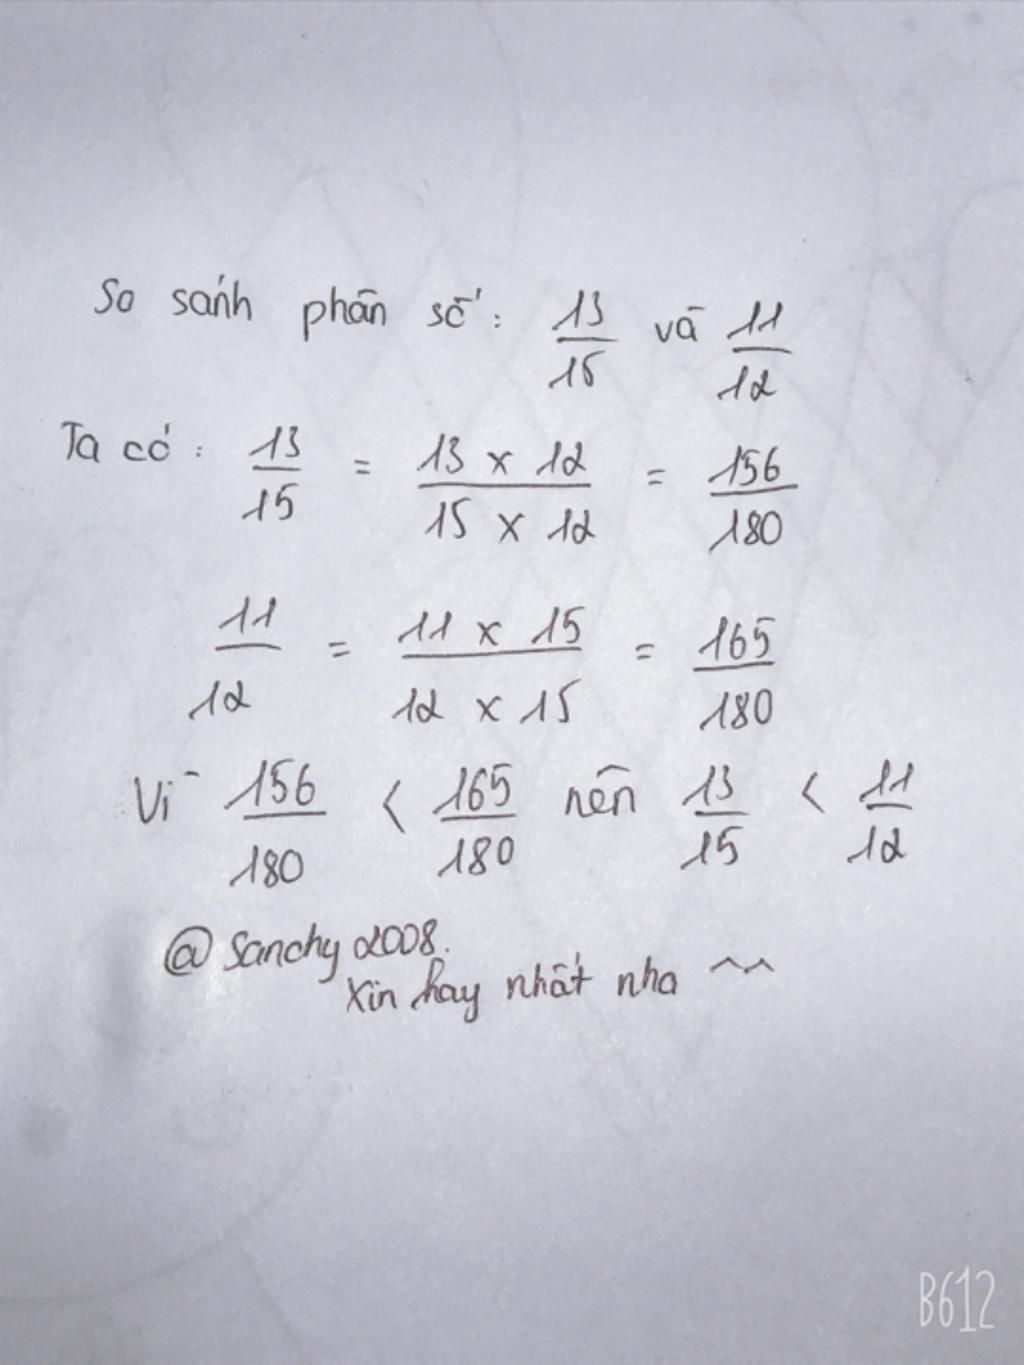 So sánh phân số: 13/15 và 11/12
Ta có: 13/15 = 13 x 12 / 15 x 12 = 156/180
11/12 = 11 x 15 / 12 x 15 = 165/180
Vì 156/180 < 165/180 nên 13/15 < 11/12
@ Sanchy 2008.
Xin hay nhất nha ^^
B612